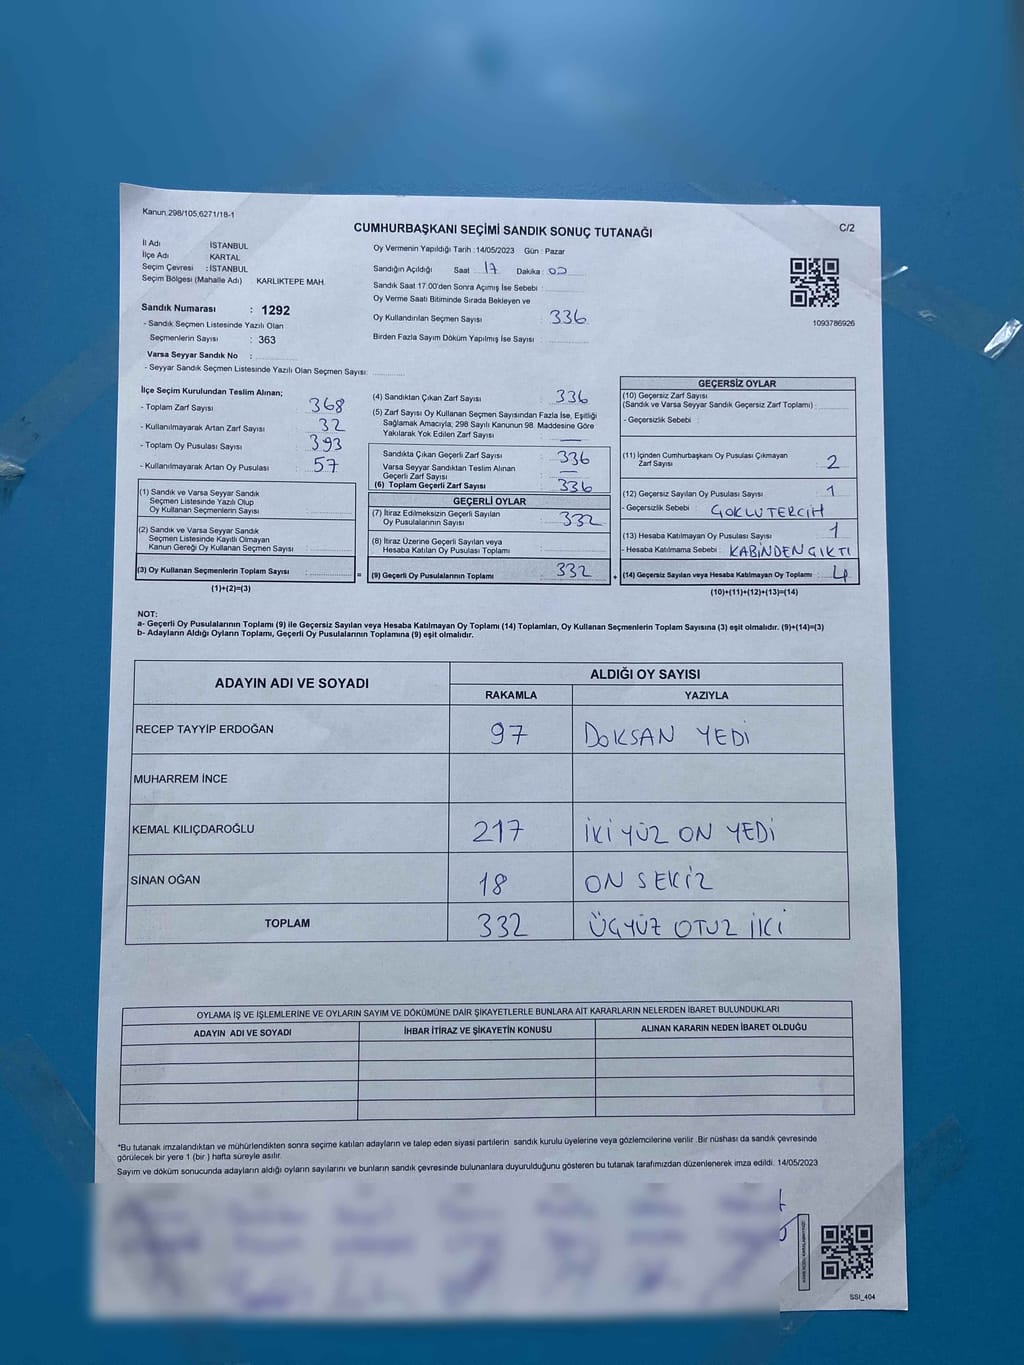 Kanun 298/105,6271/18-1
CUMHURBAŞKANI SEÇİMİ SANDIK SONUÇ TUTANAĞI
C/2
İl Adı : İSTANBUL
İlçe Adı : KARTAL
Seçim Çevresi : İSTANBUL
Seçim Bölgesi (Mahalle Adı) KARLIKTEPE MAH.
Sandık Numarası : 1292
- Sandık Seçmen Listesinde Yazılı Olan
Seçmenlerin Sayısı : 363
Varsa Seyyar Sandık No :
- Seyyar Sandık Seçmen Listesinde Yazılı Olan Seçmen Sayısı:
Oy Vermenin Yapıldığı Tarih : 14/05/2023 Gün : Pazar
Sandığın Açıldığı Saat 17 Dakika : 00
Sandık Saat 17.00'den Sonra Açımış İse Sebebi :
Oy Verme Saati Bitiminde Sırada Bekleyen ve
Oy Kullandırılan Seçmen Sayısı : 336
Birden Fazla Sayım Döküm Yapılmış İse Sayısı :
1093786926
İlçe Seçim Kurulundan Teslim Alınan;
- Toplam Zarf Sayısı : 368
- Kullanılmayarak Artan Zarf Sayısı : 32
- Toplam Oy Pusulası Sayısı : 393
- Kullanılmayarak Artan Oy Pusulası : 57
(1) Sandık ve Varsa Seyyar Sandık
Seçmen Listesinde Yazılı Olup
Oy Kullanan Seçmenlerin Sayısı :
(2) Sandık ve Varsa Seyyar Sandık
Seçmen Listesinde Kayıtlı Olmayan
Kanun Gereği Oy Kullanan Seçmen Sayısı :
(3) Oy Kullanan Seçmenlerin Toplam Sayısı :
(1)+(2)=(3)
(4) Sandıktan Çıkan Zarf Sayısı : 336
(5) Zarf Sayısı Oy Kullanan Seçmen Sayısından Fazla İse, Eşitliği
Sağlamak Amacıyla; 298 Sayılı Kanunun 98. Maddesine Göre
Yakılarak Yok Edilen Zarf Sayısı : —
Sandıkta Çıkan Geçerli Zarf Sayısı : 336
Varsa Seyyar Sandıktan Teslim Alınan
Geçerli Zarf Sayısı : —
(6) Toplam Geçerli Zarf Sayısı : 336
GEÇERLİ OYLAR
(7) İtiraz Edilmeksizin Geçerli Sayılan
Oy Pusulalarının Sayısı : 332
(8) İtiraz Üzerine Geçerli Sayılan veya
Hesaba Katılan Oy Pusulası Toplamı :
= (9) Geçerli Oy Pusulalarının Toplamı : 332
GEÇERSİZ OYLAR
(10) Geçersiz Zarf Sayısı
(Sandık ve Varsa Seyyar Sandık Geçersiz Zarf Toplamı) :
- Geçersizlik Sebebi :
(11) İçinden Cumhurbaşkanı Oy Pusulası Çıkmayan
Zarf Sayısı : 2
(12) Geçersiz Sayılan Oy Pusulası Sayısı : 1
- Geçersizlik Sebebi : ÇOKLU TERCİH
(13) Hesaba Katılmayan Oy Pusulası Sayısı : 1
- Hesaba Katılmama Sebebi : KABİNDEN ÇIKTI
+ (14) Geçersiz Sayılan veya Hesaba Katılmayan Oy Toplamı : 4
(10)+(11)+(12)+(13)=(14)
NOT:
a- Geçerli Oy Pusulalarının Toplamı (9) ile Geçersiz Sayılan veya Hesaba Katılmayan Oy Toplamı (14) Toplamları, Oy Kullanan Seçmenlerin Toplam Sayısına (3) eşit olmalıdır. (9)+(14)=(3)
b- Adayların Aldığı Oyların Toplamı, Geçerli Oy Pusulalarının Toplamına (9) eşit olmalıdır.
ADAYIN ADI VE SOYADI
ALDIĞI OY SAYISI
RAKAMLA YAZIYLA
RECEP TAYYİP ERDOĞAN 97 DOKSAN YEDİ
MUHARREM İNCE
KEMAL KILIÇDAROĞLU 217 İKİ YÜZ ON YEDİ
SİNAN OĞAN 18 ON SEKİZ
TOPLAM 332 ÜÇYÜZ OTUZ İKİ
OYLAMA İŞ VE İŞLEMLERİNE VE OYLARIN SAYIM VE DÖKÜMÜNE DAİR ŞİKAYETLERLE BUNLARA AİT KARARLARIN NELERDEN İBARET BULUNDUKLARI
ADAYIN ADI VE SOYADI İHBAR İTİRAZ VE ŞİKAYETİN KONUSU ALINAN KARARIN NEDEN İBARET OLDUĞU
*Bu tutanak imzalandıktan ve mühürlendikten sonra seçime katılan adayların ve talep eden siyasi partilerin sandık kurulu üyelerine veya gözlemcilerine verilir .Bir nüshası da sandık çevresinde
görülecek bir yere 1 (bir ) hafta süreyle asılır.
Sayım ve döküm sonucunda adayların aldığı oyların sayılarını ve bunların sandık çevresinde bulunanlara duyurulduğunu gösteren bu tutanak tarafımızdan düzenlenerek imza edildi. 14/05/2023
SSI_404